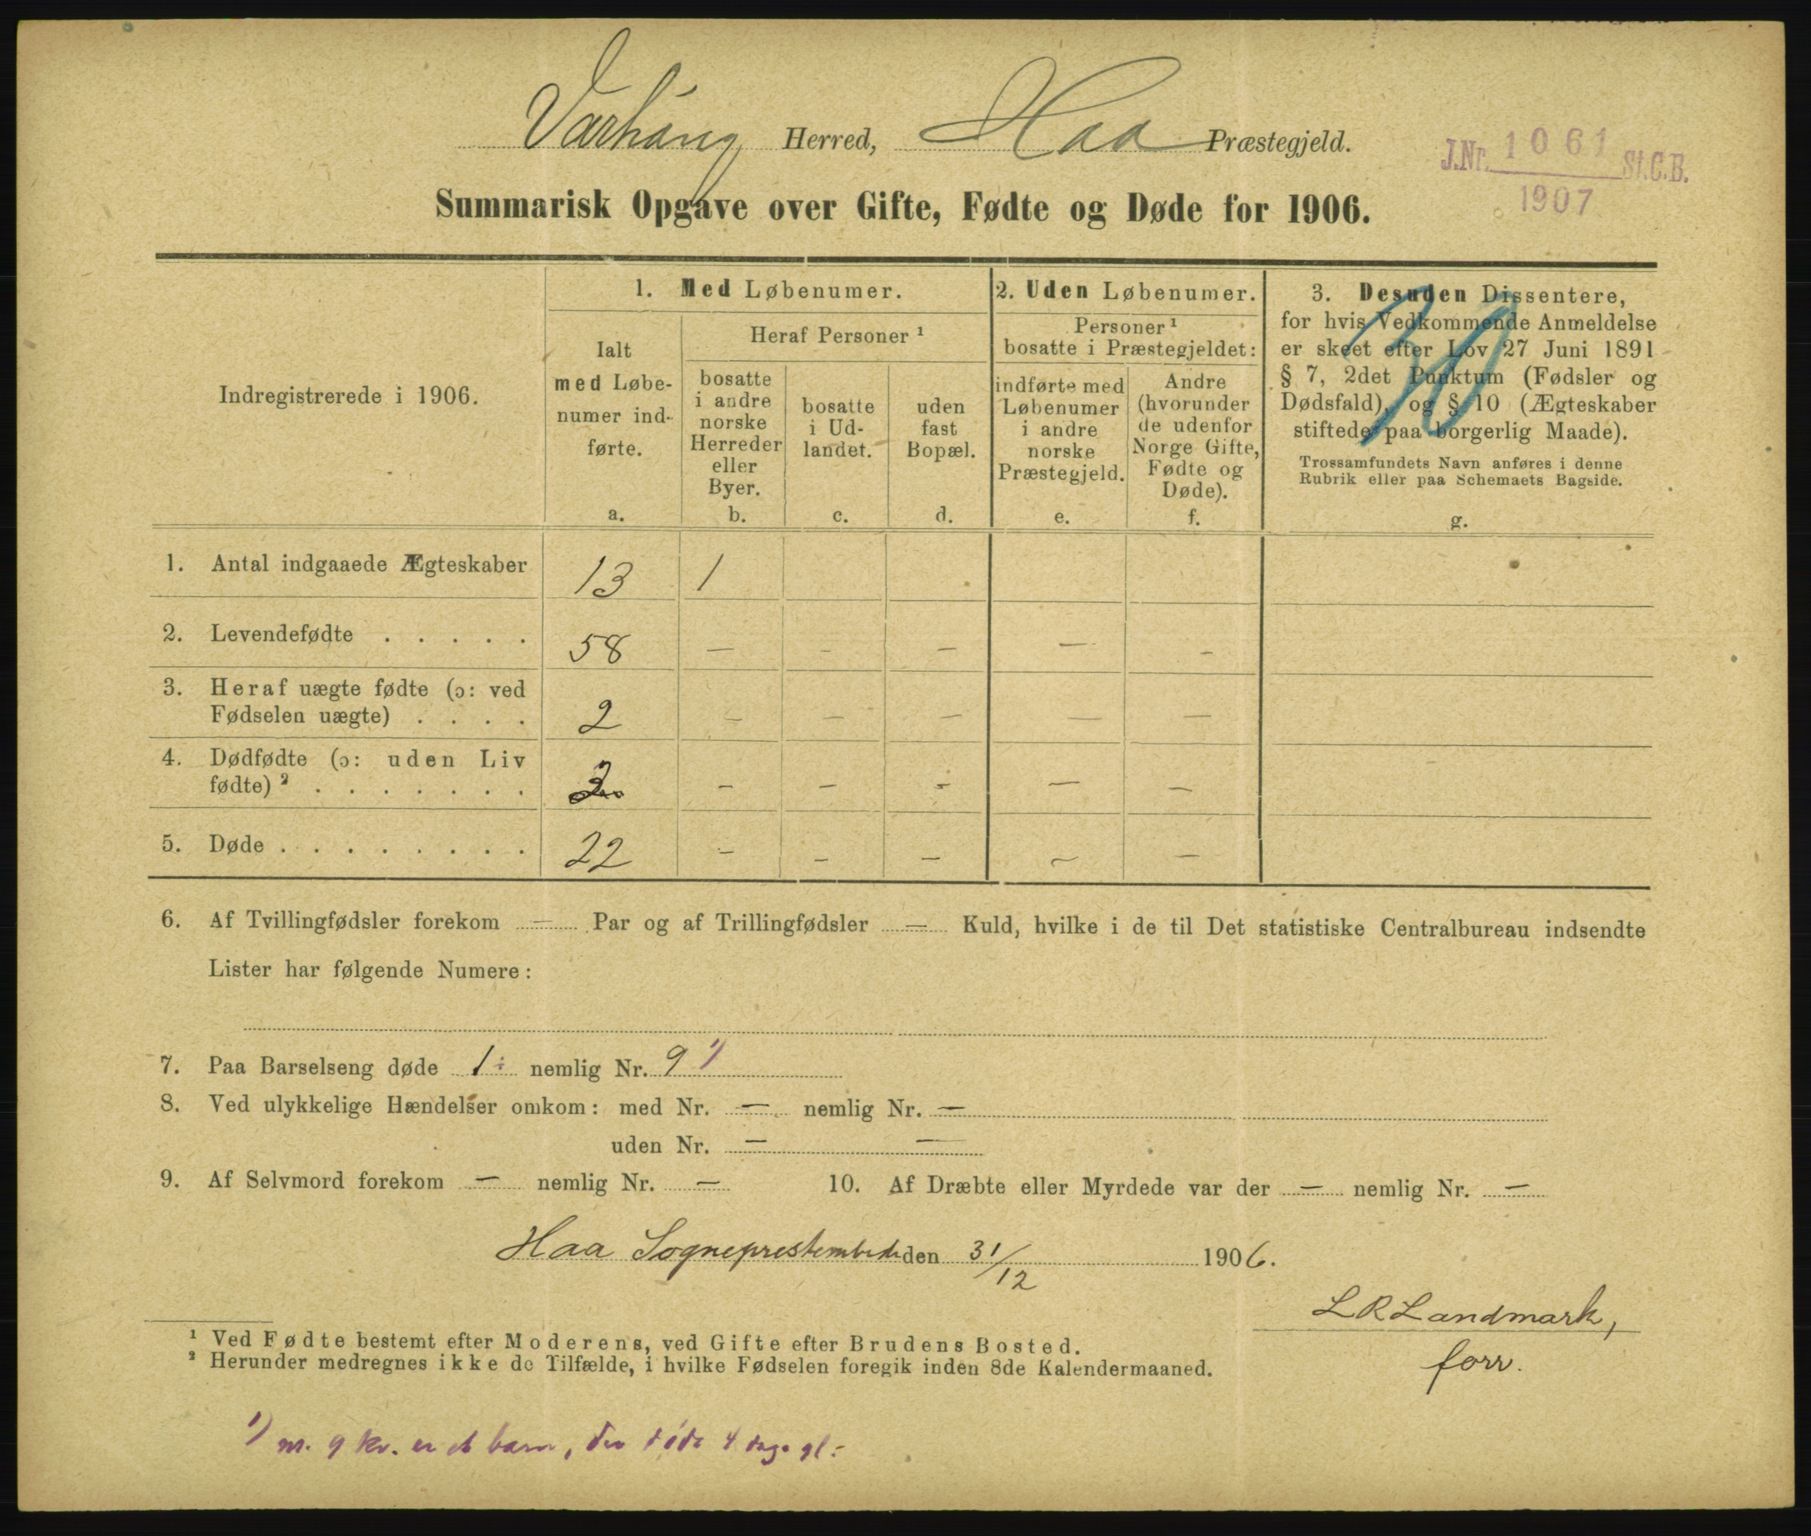 Varhaug Herred, Haa Præstegjeld.
J.Nr. 1061 St.C.B.
1907
Summarisk Opgave over Gifte, Fødte og Døde for 1906.
Indregistrerede i 1906.
1. Med Løbenumer.
Ialt med Løbenumer indførte.
a.
Heraf Personer ¹
bosatte i andre norske Herreder eller Byer.
b.
bosatte i Udlandet.
c.
uden fast Bopæl.
d.
2. Uden Løbenumer.
Personer ¹ bosatte i Præstegjeldet:
indførte med Løbenumer i andre norske Præstegjeld.
e.
Andre (hvorunder de udenfor Norge Gifte, Fødte og Døde).
f.
3. Desuden Dissentere,
for hvis Vedkommende Anmeldelse
er skeet efter Lov 27 Juni 1891
§ 7, 2det Punktum (Fødsler og
Dødsfald), og § 10 (Ægteskaber
stiftede paa borgerlig Maade).
Trossamfundets Navn anføres i denne
Rubrik eller paa Schemaets Bagside.
g.
1. Antal indgaaede Ægteskaber 13 1
2. Levendefødte . . . . . 58 — — — — —
3. Heraf uægte fødte (ɔ: ved
Fødselen uægte) . . . . 2 — — — — —
4. Dødfødte (ɔ: uden Liv
fødte) ² . . . . . . . 2 — — — — —
5. Døde . . . . . . . . 22 — — — — —
6. Af Tvillingfødsler forekom — Par og af Trillingfødsler — Kuld, hvilke i de til Det statistiske Centralbureau indsendte
Lister har følgende Numere:
7. Paa Barselseng døde 1 nemlig Nr. 9 ¹)
8. Ved ulykkelige Hændelser omkom: med Nr. — nemlig Nr. —
uden Nr. — —
9. Af Selvmord forekom — nemlig Nr. — 10. Af Dræbte eller Myrdede var der — nemlig Nr. —
Haa Sogneprestembede den 31/12 1906.
L R Landmark,
forr.
¹ Ved Fødte bestemt efter Moderens, ved Gifte efter Brudens Bosted.
² Herunder medregnes ikke de Tilfælde, i hvilke Fødselen foregik inden 8de Kalendermaaned.
¹) nr. 9 kv. er et barn, der døde 4 dage gl.